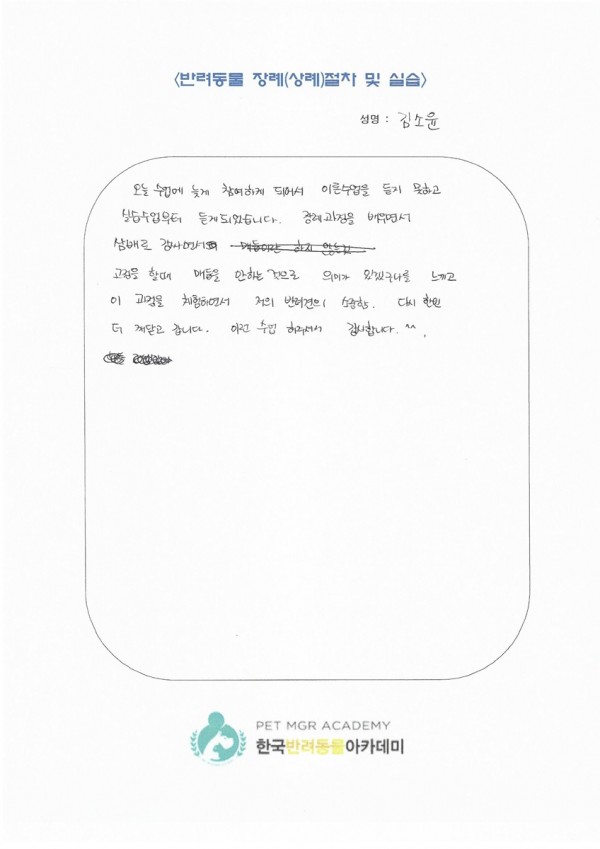 <반려동물 장례(상례)절차 및 실습>
성명 : 김소윤
오늘 수업에 늦게 참여하게 되어서 이론수업을 듣지 못하고
실습수업부터 듣게되었습니다. 장례과정을 배우면서
삼베로 감싸면서
고정을 할때 매듭을 안하는 것으로 의미가 있겠구나를 느끼고
이 과정을 체험하면서 저의 반려견의 소중함. 다시 한번
더 깨닫고 갑니다. 이런 수업 해주셔서 감사합니다. ^^.
PET MGR ACADEMY
한국반려동물아카데미